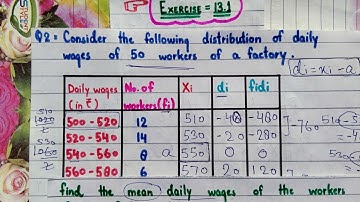 EXERCISE = 13.1
Q2 = Consider the following distribution of daily
wages of 50 workers of a factory.
di = xi - a
Daily wages (in ₹) No. of workers (fi) Xi di fidi
500-520 12 510 -40 -480
520-540 14 530 -20 -280
540-560 8 a 550 0 0
560-580 6 570 20 120
-760
find the mean daily wages of the workers